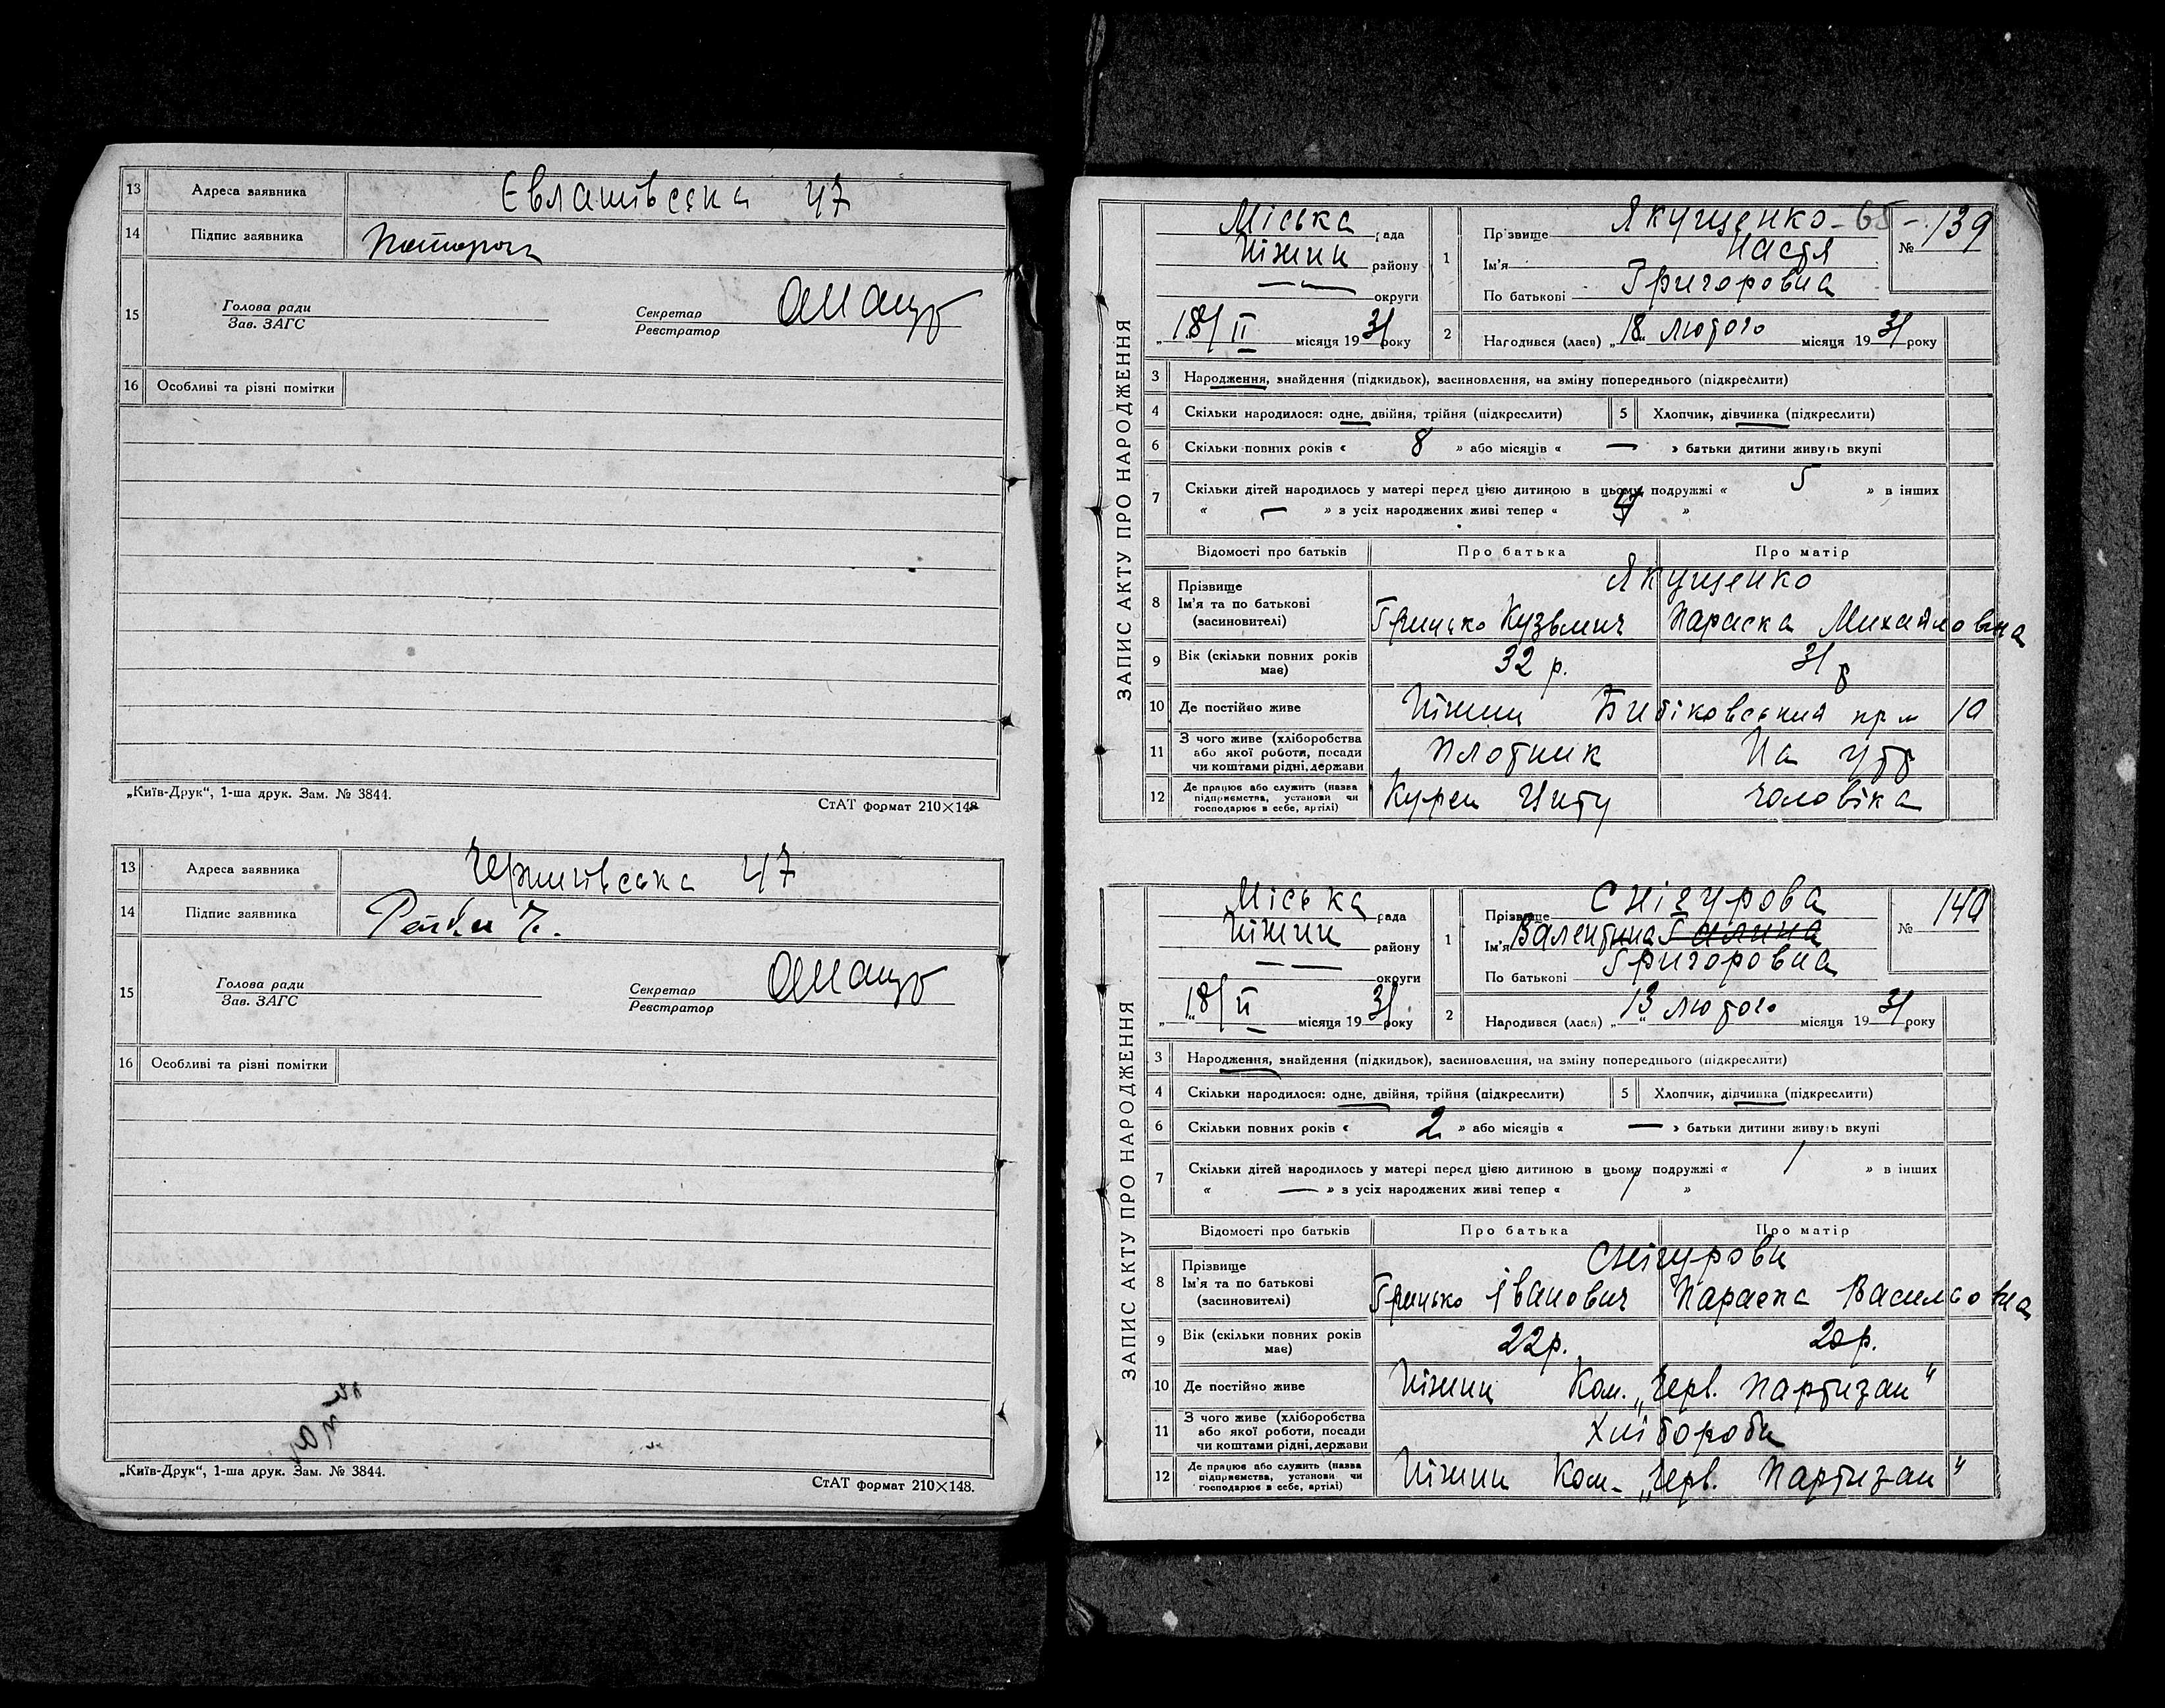 13 Адреса заявника Євлашівська 47
14 Підпис заявника
15 Голова ради
Зав. ЗАГС
Секретар
Реєстратор
16 Особливі та різні помітки
„Київ-Друк“, 1-ша друк. Зам. № 3844. СтАТ формат 210×148
13 Адреса заявника Чернигівська 47
14 Підпис заявника
15 Голова ради
Зав. ЗАГС
Секретар
Реєстратор
16 Особливі та різні помітки
„Київ-Друк“, 1-ша друк. Зам. № 3844. СтАТ формат 210×148.
ЗАПИС АКТУ ПРО НАРОДЖЕННЯ
Міська рада
Ніжин району
— — округи
„18/II місяця 1931 року
1 Прізвище Якущенко - 65 -
Ім'я Настя
По батькові Григоровна
№ 139
2 Народився (лася) „18“ лютого місяця 1931 року
3 Народження, знайдення (підкидьок), засиновлення, на зміну попереднього (підкреслити)
4 Скільки народилося: одне, двійня, трійня (підкреслити) 5 Хлопчик, дівчинка (підкреслити)
6 Скільки повних років « 8 » або місяців « — » батьки дитини живуть вкупі
7 Скільки дітей народилось у матері перед цією дитиною в цьому подружжі « 5 » в інших
« — » з усіх народжених живі тепер « »
Відомості про батьків Про батька Про матір
8 Прізвище
Ім'я та по батькові
(засиновителі)
Якущенко
Грицько Кузьмич Параска Михайловна
9 Вік (скільки повних років має) 32 р. 31 р
10 Де постійно живе Ніжин Бибіковський 10
11 З чого живе (хліборобства або якої роботи, посади чи коштами рідні, держави Плотник На утр
12 Де працює або служить (назва підприємства, установи чи господарює в себе, артілі) Курси Циту чоловіка
ЗАПИС АКТУ ПРО НАРОДЖЕННЯ
Міська рада
Ніжин району
— — округи
„18/II місяця 1931 року
1 Прізвище Снігурова
Ім'я Валентина Галина
По батькові Григоровна
№ 140
2 Народився (лася) „13“ лютого місяця 1931 року
3 Народження, знайдення (підкидьок), засиновлення, на зміну попереднього (підкреслити)
4 Скільки народилося: одне, двійня, трійня (підкреслити) 5 Хлопчик, дівчинка (підкреслити)
6 Скільки повних років « 2 » або місяців « — » батьки дитини живуть вкупі
7 Скільки дітей народилось у матері перед цією дитиною в цьому подружжі « 1 » в інших
« — » з усіх народжених живі тепер « 1 »
Відомості про батьків Про батька Про матір
8 Прізвище
Ім'я та по батькові
(засиновителі)
Снігурови
Грицько Іванович Параска Васильовна
9 Вік (скільки повних років має) 22р. 20р.
10 Де постійно живе Ніжин Ком. „Черв. Партизан“
11 З чого живе (хліборобства або якої роботи, посади чи коштами рідні, держави Хлібороби
12 Де працює або служить (назва підприємства, установи чи господарює в себе, артілі) Ніжин Ком. „Черв. Партизан“